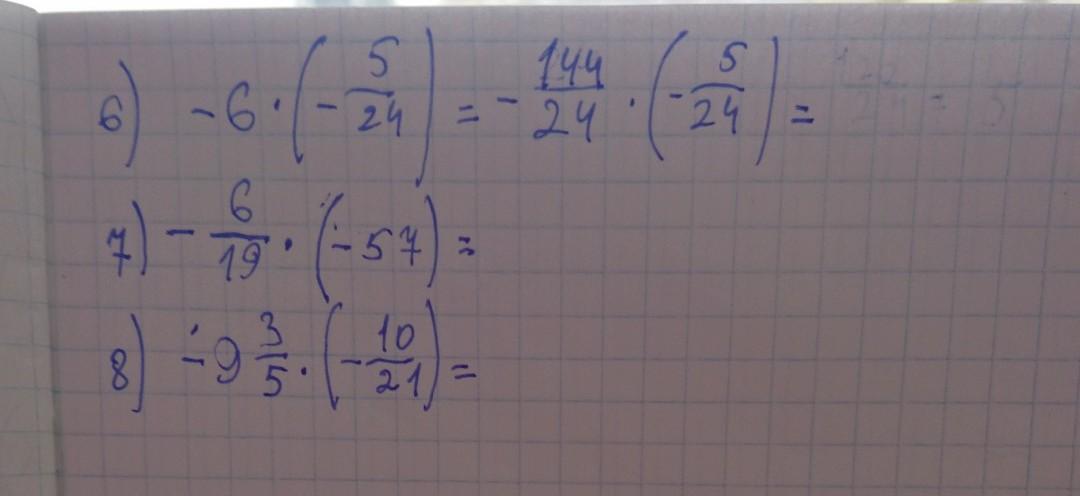 6) -6 · (- 5/24) = - 144/24 · (- 5/24) =
7) - 6/19 · (-57) =
8) -9 3/5 · (- 10/21) =